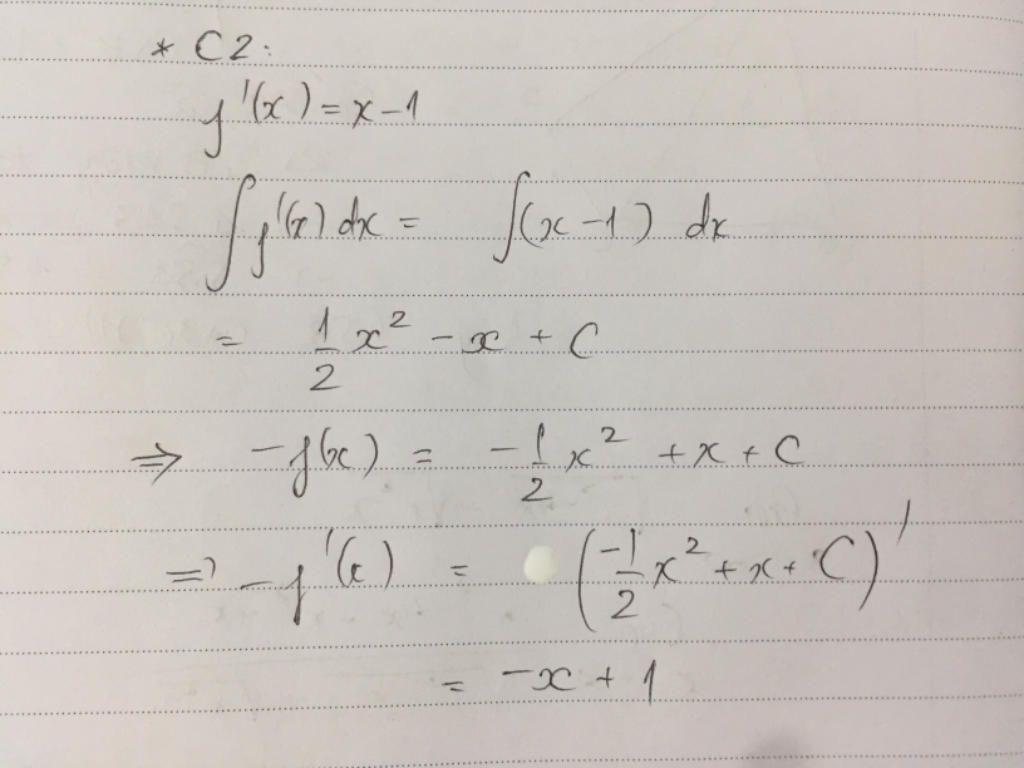 * C2:
f'(x) = x - 1
∫ f'(x) dx = ∫(x - 1) dx
= 1/2 x² - x + C
⇒ -f(x) = -1/2 x² + x + C
⇒ -f'(x) = (-1/2 x² + x + C)'
= -x + 1